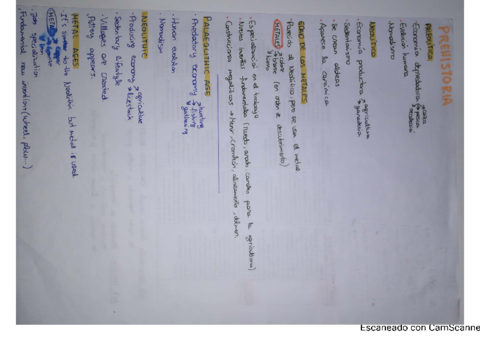 PREHISTORIA
PALEOLÍTICO
· Economía depredadora → caza → pesca → recolección
· Evolución humana
· Nomadismo
NEOLÍTICO
· Economía productora → agricultura → ganadería
· Sedentarismo
· Se crean aldeas
· Aparece la cerámica
EDAD DE LOS METALES
· Parecido al Neolítico pero se usa el metal
METALES → cobre → bronce → hierro (en orden de descubrimiento)
· Especialización en el trabajo
· Nuevos inventos fundamentales (rueda, arado, cambio para la agricultura)
· Construcciones megalíticas → menhir, cromlech, alineamiento, dolmen
PALAEOLITHIC AGE
· Predatory economy → hunting → fishing → gathering
· Human evolution
· Nomadism
NEOLITHIC
· Producing economy → agriculture → livestock
· Sedentary lifestyle
· Villages are created
· Pottery appears.
METAL AGES
· It's similar to the Neolithic but metal is used
METALS
· Job specialization
· Fundamental new inventions (wheel, plow...)
Escaneado con CamScanne